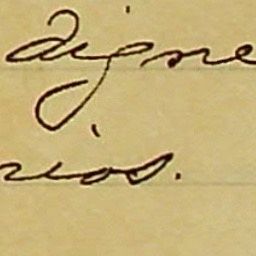 digne
rios.